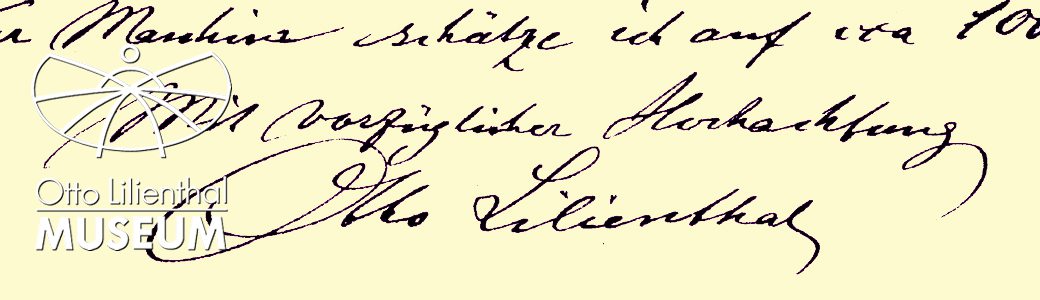 Maschine schätze ich auf ca 100
Mit vorzüglicher Hochachtung
Otto Lilienthal
Otto Lilienthal
MUSEUM